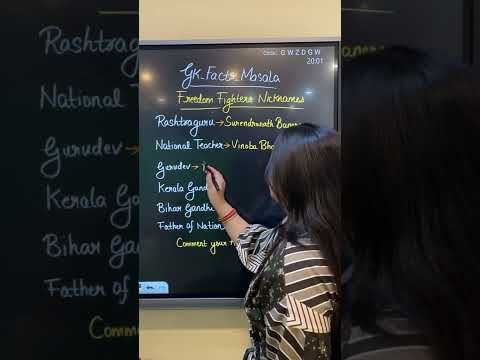 Code: GWZDGW
20:01
GK.Facts Masala
Freedom Fighters Nicknames
Rashtraguru → Surendranath
National Teacher → Vinoba
Gurudev →
Kerala
Bihar Gandhi
Father of Nation
Comment your
Rashtragur
National T
Gurudev →
Kerala Gan
Bihar Ga
Father of
Comme